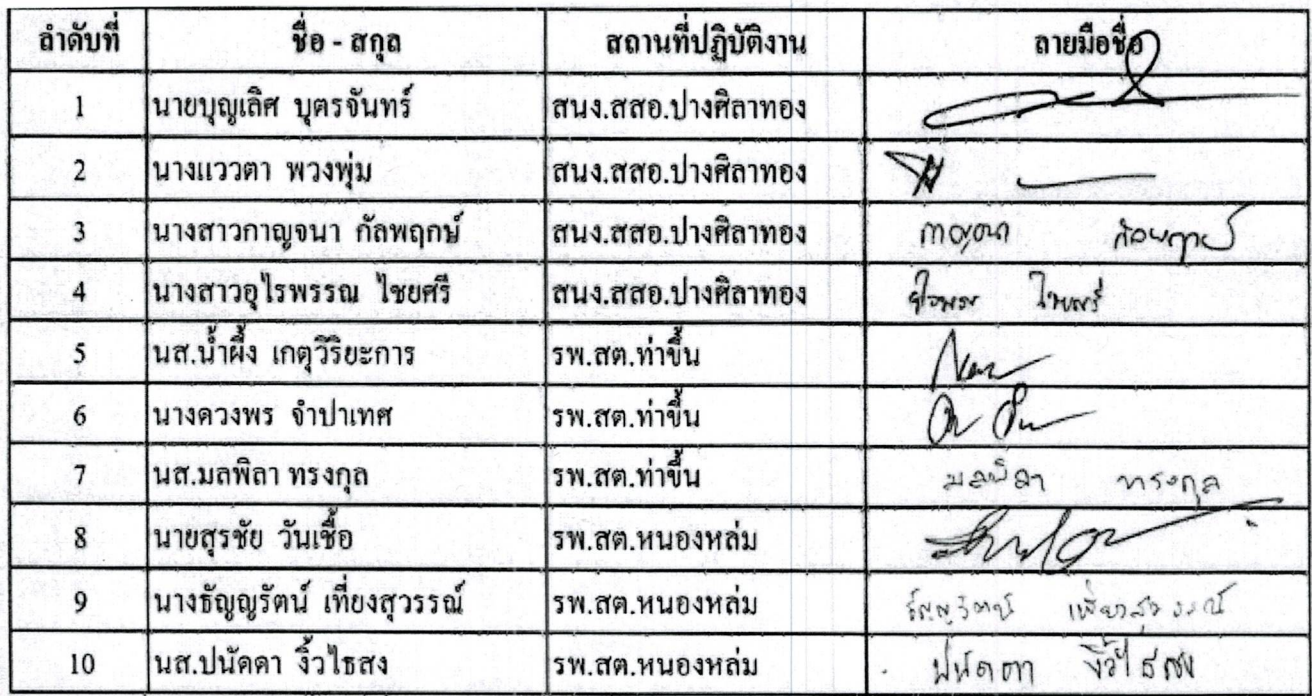 ลำดับที่ ชื่อ - สกุล สถานที่ปฏิบัติงาน ลายมือชื่อ
1 นายบุญเลิศ บุตรจันทร์ สนง.สสอ.ปางศิลาทอง
2 นางแววตา พวงพุ่ม สนง.สสอ.ปางศิลาทอง
3 นางสาวกาญจนา กัลพฤกษ์ สนง.สสอ.ปางศิลาทอง กาญจนา กัลพฤกษ์
4 นางสาวอุไรพรรณ ไชยศรี สนง.สสอ.ปางศิลาทอง ไชยศรี
5 นส.น้ำผึ้ง เกตุวิริยะการ รพ.สต.ท่าขึ้น
6 นางดวงพร จำปาเทศ รพ.สต.ท่าขึ้น
7 นส.มลพิลา ทรงกุล รพ.สต.ท่าขึ้น มลพิลา ทรงกุล
8 นายสุรชัย วันเชื้อ รพ.สต.หนองหล่ม
9 นางธัญญรัตน์ เที่ยงสุวรรณ์ รพ.สต.หนองหล่ม ธัญญรัตน์ เที่ยงสุวรรณ์
10 นส.ปนัดดา งิ้วไธสง รพ.สต.หนองหล่ม ปนัดดา งิ้วไธสง